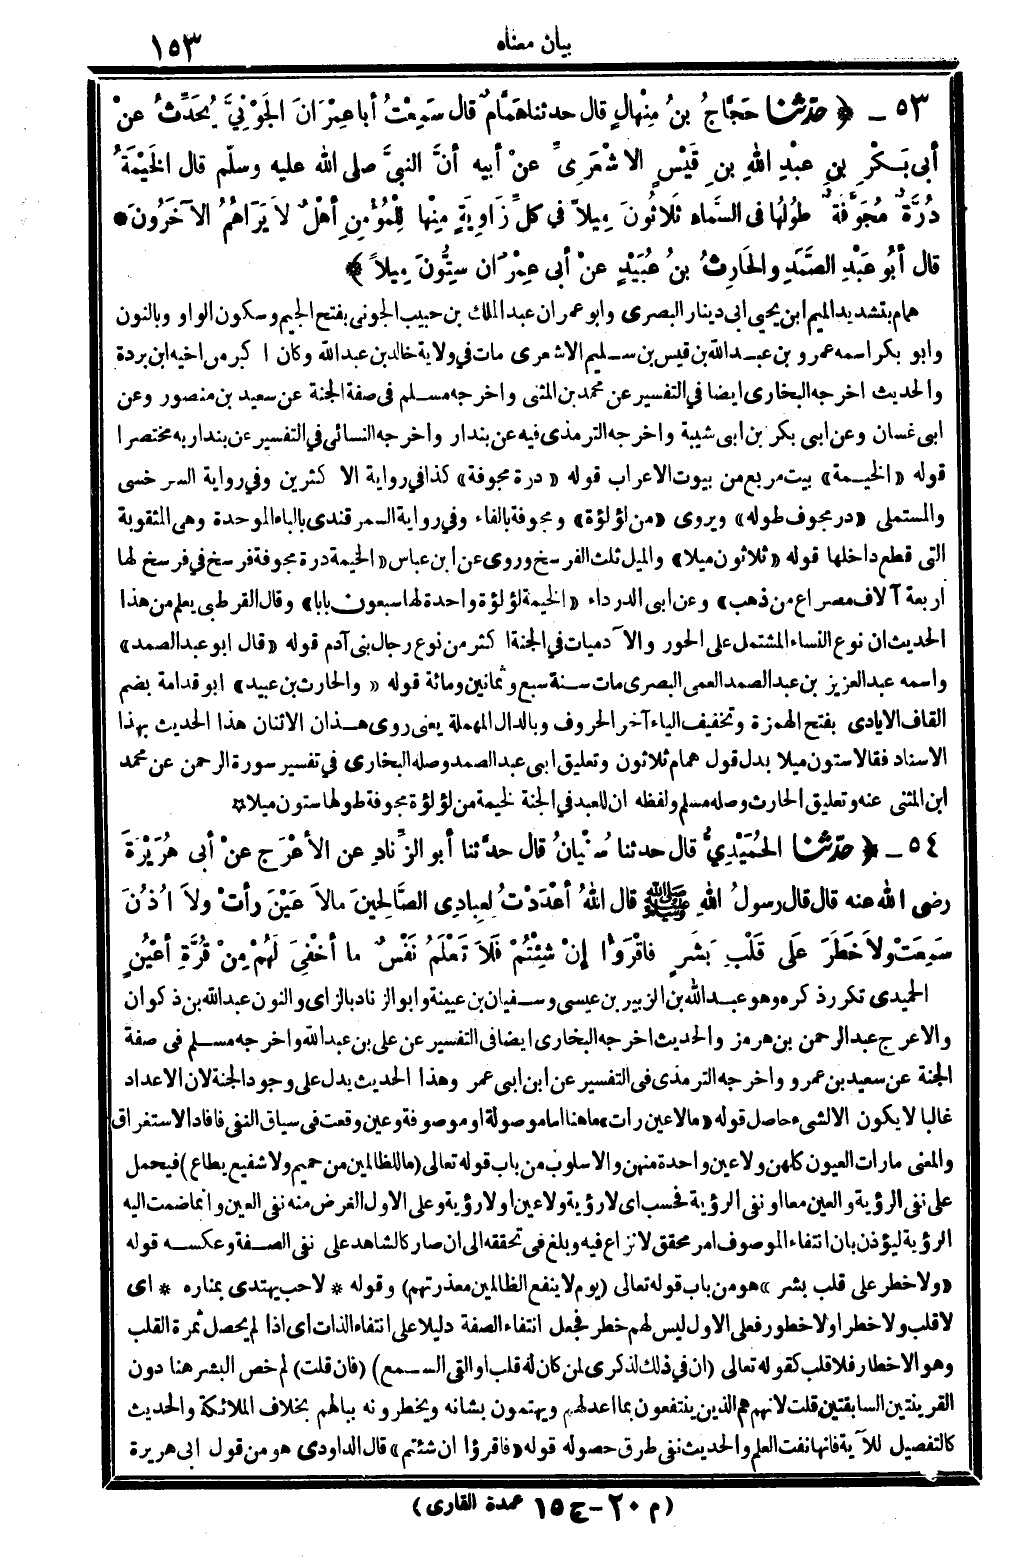 بيان معناه
١٥٣
٥٣ ـ ﴿ حدّثنا حَجَّاجُ بنُ مِنْهالٍ قال حدثنا هَمَّامٌ قال سَمِعْتُ أباعِمْرَانَ الجَوْنِيَّ يُحَدِّثُ عنْ
أبى بَكْرِ بنِ عبْدِ اللهِ بنِ قَيْسٍ الاشْعَرِىِّ عنْ أبيه أنَّ النبيَّ صلى الله عليه وسلّم قال الخَيْمَةُ
دُرَّةٌ مُجَوَّفَةٌ طُولُها فى السَّماء ثلاثُونَ مِيلاً في كلِّ زَاوِيَةٍ مِنْها لِلْمُؤْمِنِ أهْلٌ لاَ يَرَاهُمُ الآخَرُونَ *
قال أبُو عَبْدِ الصَّمَدِ والحَارِثُ بنُ عُبَيْدٍ عنْ أبى عِمْرَان سِتُّونَ مِيلاً ﴾
همام بتشديد الميم ابن يحيى ابى دينار البصرى وابو عمران عبد الملك بن حبيب الجونى بفتح الجيم وسكون الواو وبالنون
وابو بكر اسمه عمرو بن عبد الله بن قيس بن سليم الاشعرى مات في ولاية خالد بن عبد الله وكان اكبر من اخيه ابن بردة
والحديث اخرجه البخارى ايضا في التفسير عن محمد بن المثنى واخرجه مسلم فى صفة الجنة عن سعيد بن منصور وعن
ابى غسان وعن ابى بكر بن ابى شيبة واخرجه الترمذى فيه عن بندار واخرجه النسائى في التفسير عن بندار به مختصرا
قوله «الخيمة» بيت مربع من بيوت الاعراب قوله «درة مجوفة» كذا في رواية الاكثرين وفي رواية السرخسى
والمستملى «در مجوف طوله» ويروى «من لؤلؤة» ومجوفة بالفاء وفي رواية السمرقندى بالباء الموحدة وهى المثقوبة
التى قطع داخلها قوله «ثلاثون ميلا» والميل ثلث الفرسخ وروى عن ابن عباس «الخيمة درة مجوفة فرسخ في فرسخ لها
اربعة آلاف مصراع من ذهب» وعن ابى الدرداء «الخيمة لؤلؤة واحدة لها سبعون بابا» وقال القرطبى يعلم من هذا
الحديث ان نوع النساء المشتمل على الحور والآدميات في الجنة اكثر من نوع رجال بنى آدم قوله «قال ابو عبد الصمد»
واسمه عبد العزيز بن عبد الصمد العمى البصرى مات سنة سبع وثمانين ومائة قوله «والحارث بن عبيد» ابو قدامة بضم
القاف الايادى بفتح الهمزة وتخفيف الياء آخر الحروف وبالدال المهملة يعنى روى هذان الاثنان هذا الحديث بهذا
الاسناد فقالا ستون ميلا بدل قول همام ثلاثون وتعليق ابى عبد الصمد وصله البخارى في تفسير سورة الرحمن عن محمد
ابن المثنى عنه وتعليق الحارث وصله مسلم ولفظه ان للعبد في الجنة لخيمة من لؤلؤة مجوفة طولها ستون ميلا *
٥٤ ـ ﴿ حدّثنا الحُمَيْدِىُّ قال حدثنا سُفْيانُ قال حدَّثنا أبو الزِّنادِ عن الأعْرَجِ عنْ أبى هُرَيْرَةَ
رضى الله عنه قال قال رسولُ اللهِ ﷺ قال اللهُ أعْدَدْتُ لِعبادِى الصَّالِحِينَ مالاَ عَيْنٌ رأتْ ولاَ اُذُنٌ
سَمِعَتْ ولاَ خَطَرَ عَلَى قَلْبِ بَشَرٍ فاقْرَؤا إنْ شِئْتُمْ فَلاَ تَعْلَمُ نَفْسٌ ما أُخْفِىَ لَهُمْ مِنْ قُرَّةِ أعْيُنٍ
الحميدى تكرر ذكره وهو عبد الله بن الزبير بن عيسى وسفيان بن عيينة وابو الزناد بالزاى والنون عبد الله بن ذكوان
والاعرج عبد الرحمن بن هرمز والحديث اخرجه البخارى ايضا فى التفسير عن على بن عبد الله واخرجه مسلم فى صفة
الجنة عن سعيد بن عمرو واخرجه الترمذى فى التفسير عن ابن ابى عمر وهذا الحديث يدل على وجود الجنة لان الاعداد
غالبا لا يكون الا لشىء حاصل قوله «مالا عين رات» ماهنا اما موصولة او موصوفة وعين وقعت في سياق النفى فافاد الاستغراق
والمعنى مارات العيون كلهن ولا عين واحدة منهن والاسلوب من باب قوله تعالى (ما للظالمين من حميم ولا شفيع يطاع) فيحمل
على نفى الرؤية والعين معا او نفى الرؤية فحسب اى لا رؤية ولا عين او لا رؤية وعلى الاول الغرض منه نفى العين وانما ضمت اليه
الرؤية ليؤذن بان انتفاء الموصوف امر محقق لا نزاع فيه وبلغ فى تحققه الى ان صار كالشاهد على نفى الصفة وعكسه قوله
«ولا خطر على قلب بشر» هو من باب قوله تعالى (يوم لا ينفع الظالمين معذرتهم) وقوله * لاحب يهتدى بمناره * اى
لا قلب ولا خطر او لا خطور فعلى الاول ليس لهم خطر فجعل انتفاء الصفة دليلا على انتفاء الذات اى اذا لم يحصل ثمرة القلب
وهو الاخطار فلا قلب كقوله تعالى (ان في ذلك لذكرى لمن كان له قلب او القى السمع) (فان قلت) لم خص البشر هنا دون
القرينتين السابقتين قلت لانهم هم الذين ينتفعون بما اعد لهم ويهتمون بشانه ويخطرونه ببالهم بخلاف الملائكة والحديث
كالتفصيل للآية فانها نفت العلم والحديث نفى طرق حصوله قوله «فاقرؤا ان شئتم» قال الداودى هو من قول ابى هريرة
(م ٢٠ ـ ج ١٥ عمدة القارى)